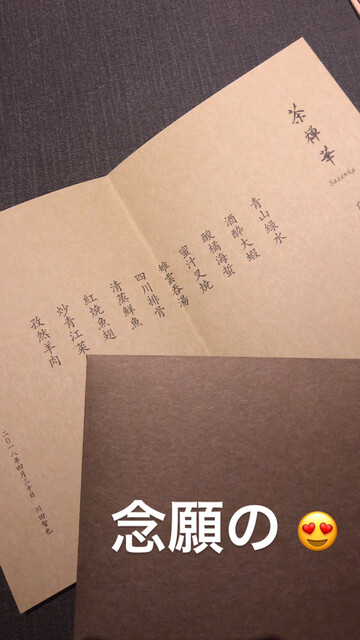 茶禅華
Sazenka
青山緑水
酒醉大蝦
酸橘海蜇
蜜汁叉焼
雉雲呑湯
四川排骨
清蒸鮮魚
紅焼魚翅
炒青江菜
孜然羊肉
二〇一八年四月三十日 川田智也
念願の😍